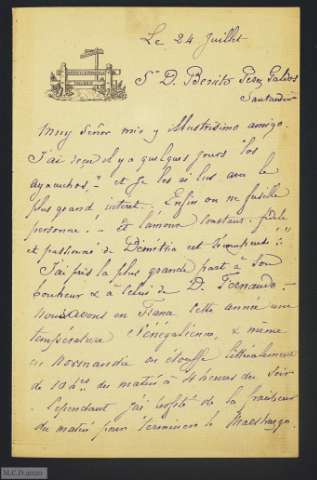 Le 24 Juillet
Sr D. Benito Perez Galdos
Santander
Muy Señor mio y illustrisimo amigo.
J'ai reçu il y a quelques jours "los
ayacuchos," et je les ai lus avec le
plus grand intérêt. Enfin on ne fusille
personne! et l'amour constant, fidèle
et passionné de Démétria est
J'ai pris la plus grande part à son
bonheur & à celui de D. Fernando.
Nous avons en France cette année une
température Sénégalienne, & même
en Normandie on étouffe littéralement
de 10 hres du matin à 4 heures du soir
. Cependant j'ai profité de la fraicheur
du matin pour terminer le Maestrazgo.